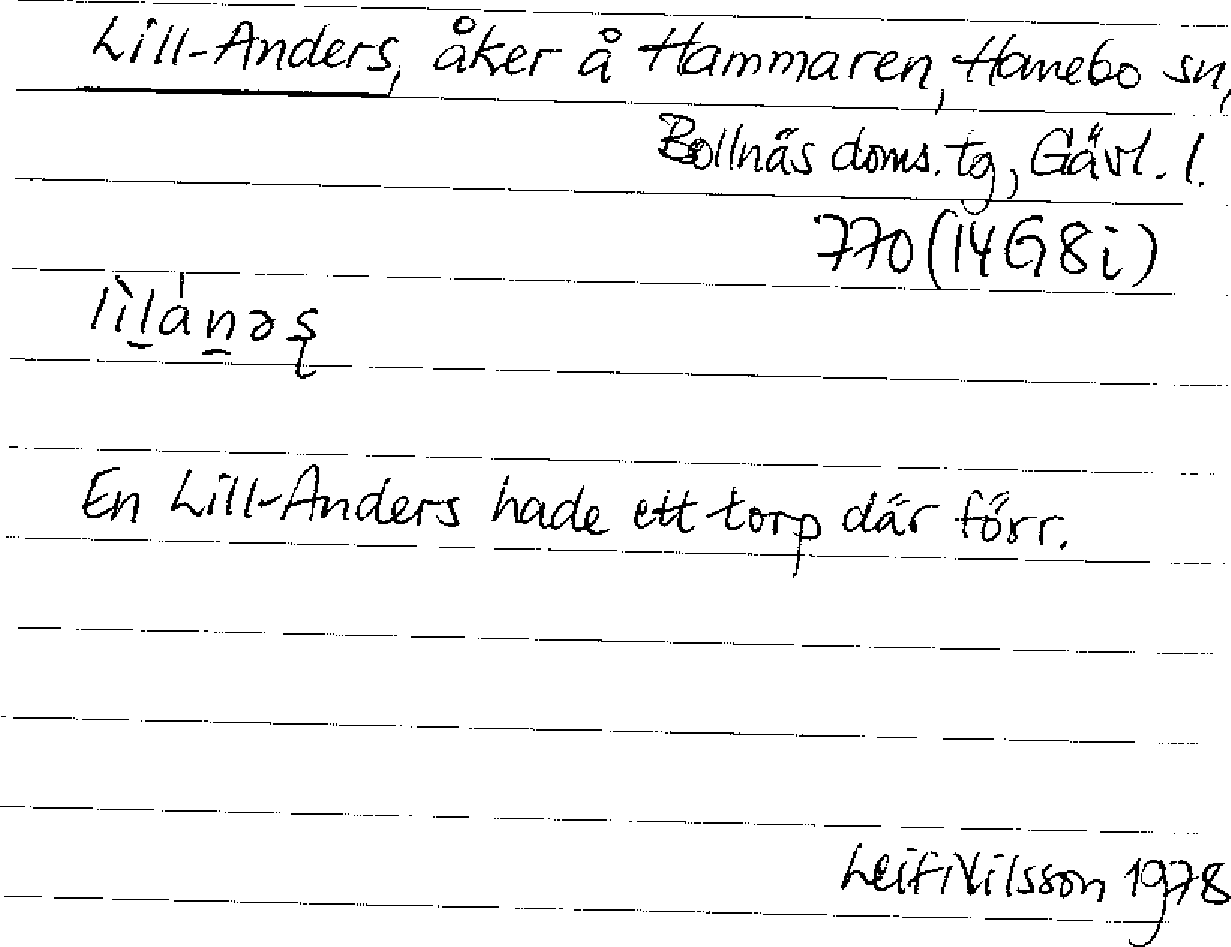 Lill-Anders, åker å Hammaren, Hanebo sn,
Bollnäs doms. tg, Gävl. l.
770 (14G8i)
lìl̠án̠əş
En Lill-Anders hade ett torp där förr.
Leif Nilsson 1978